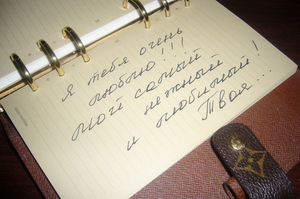 Я тебя очень
люблю!!!
мой самый
нежный
и любимый!
Твоя...